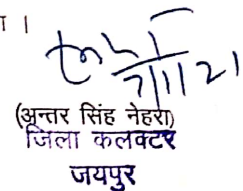 । 
7/1/21
(अन्तर सिंह नेहरा)
जिला कलक्टर
जयपुर